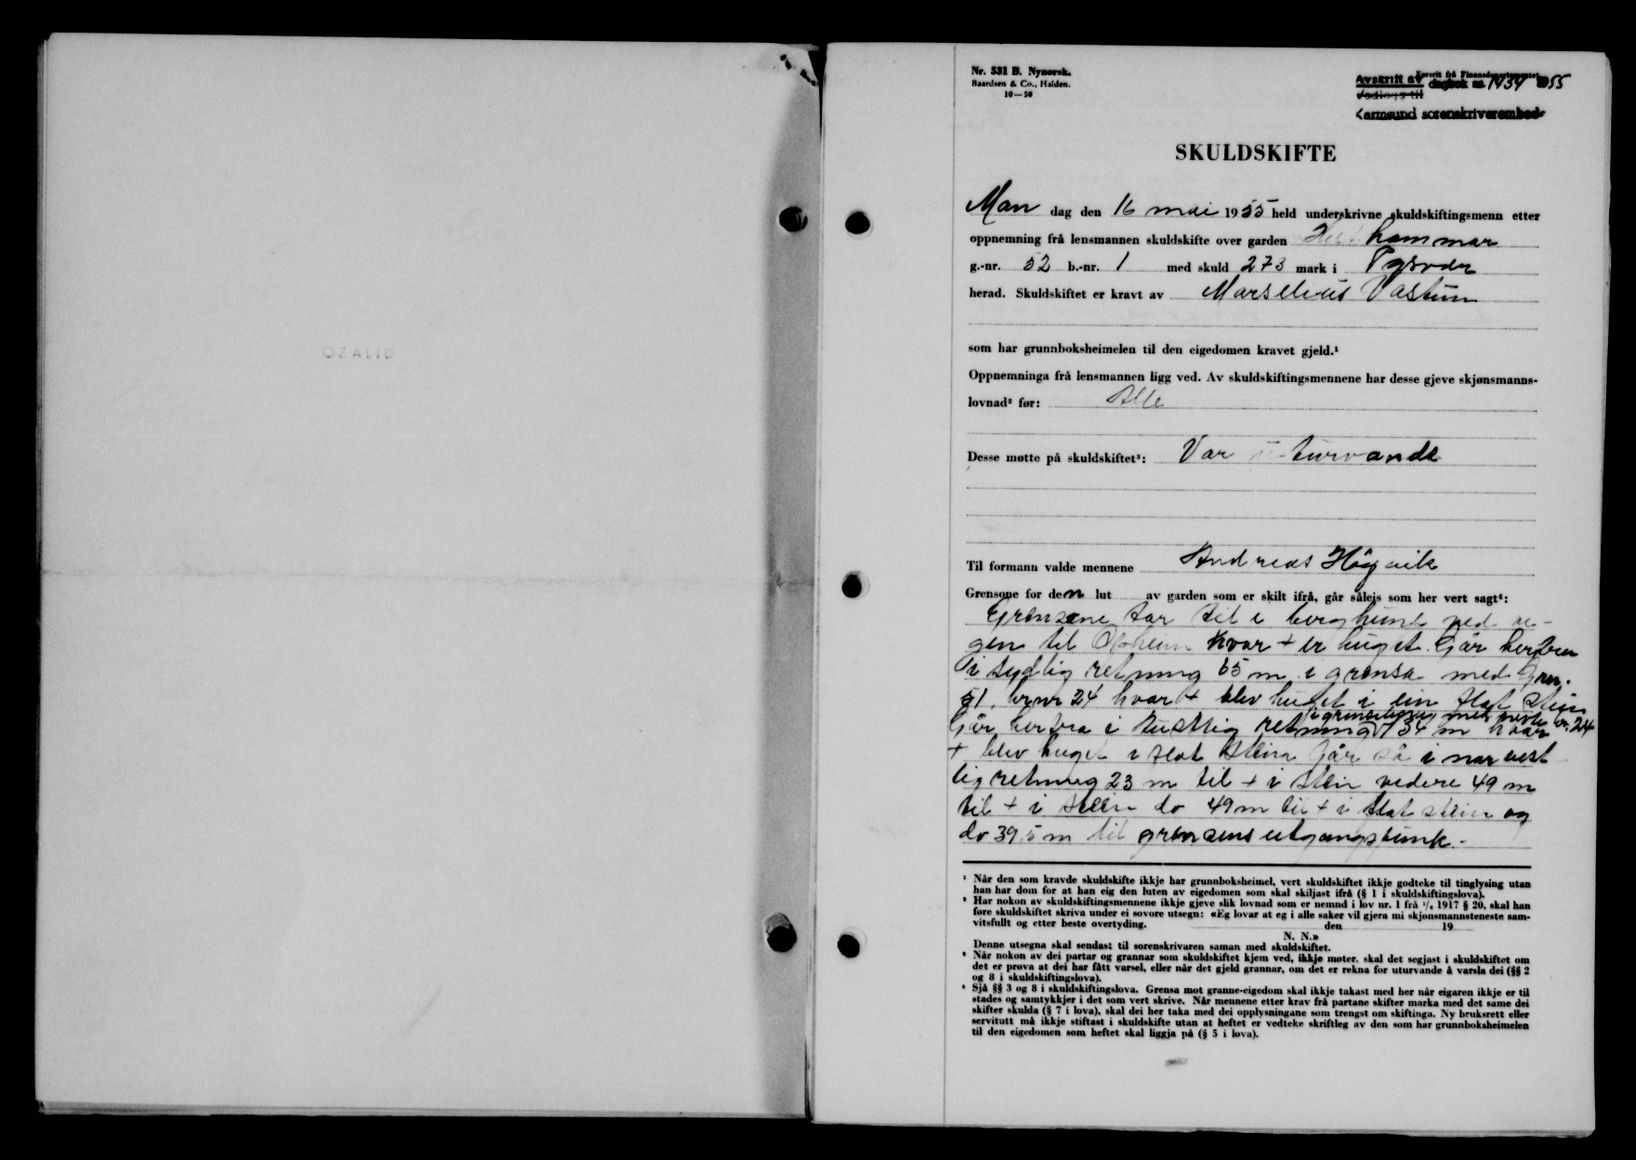 OZALID
Nr. 531 B. Nynorsk.
Baardsen & Co., Halden.
10—50
Førerit frå Finansdepartementet
Avskrift av dagbok nr. 1434 1955
Vedlegg til
Karmsund sorenskriverembede
SKULDSKIFTE
Man dag den 16 mai 1955 held underskrivne skuldskiftingsmenn etter
oppnemning frå lensmannen skuldskifte over garden hammar
g.-nr. 52 b.-nr. 1 med skuld 273 mark i Tysvær
herad. Skuldskiftet er kravt av Marselius Vastun
som har grunnboksheimelen til den eigedomen kravet gjeld.¹
Oppnemninga frå lensmannen ligg ved. Av skuldskiftingsmennene har desse gjeve skjønsmanns-
lovnad² før: Alle
Desse møtte på skuldskiftet³: Var uturvande
Til formann valde mennene Andreas Høgvik
Grensone for den lut av garden som er skilt ifrå, går såleis som her vert sagt⁴:
Grensene tar til i berghunt ved ve-
gen til hvor + er huget. Går herfra
i sydlig retning 65 m i grensa med Gnr.
51, brnr 24 hvor + blev huget i ein flat stein
i grenselinja med br. 24
Går herfra i retning 34 m hvor
+ blev huget i flat stein går så i nor vest
lig retning 23 m til + i stein videre 49 m
til + i stein do 49 m til + i flat stein og
do 39,5 m til grensens utgangspunk.
¹ Når den som kravde skuldskifte ikkje har grunnboksheimel, vert skuldskiftet ikkje godteke til tinglysing utan
han har dom for at han eig den luten av eigedomen som skal skiljast ifrå (§ 1 i skuldskiftingslova).
² Har nokon av skuldskiftingsmennene ikkje gjeve slik lovnad som er nemnd i lov nr. 1 frå 1/6 1917 § 20, skal han
føre skuldskiftet skriva under ei sovore utsegn: «Eg lovar at eg i alle saker vil gjera mi skjønsmannsteneste sam-
vitsfullt og etter beste overtyding. den 19
N. N.»
Denne utsegna skal sendast til sorenskrivaren saman med skuldskiftet.
³ Når nokon av dei partar og grannar som skuldskiftet kjem ved, ikkje møter, skal det segjast i skuldskiftet om
det er prova at dei har fått varsel, eller når det gjeld grannar, om det er rekna for uturvande å varsla dei (§§ 2
og 8 i skuldskiftingslova).
⁴ Sjå §§ 3 og 8 i skuldskiftingslova. Grensa mot granne-eigedom skal ikkje takast med her når eigaren ikkje er til
stades og samtykkjer i det som vert skrive. Når mennene etter krav frå partane skifter marka med det same dei
skifter skulda (§ 7 i lova), skal dei her taka med dei opplysningane som trengst om skiftinga. Ny bruksrett eller
servitutt må ikkje stiftast i skuldskifte utan at heftet er vedteke skriftleg av den som har grunnboksheimelen
til den eigedomen som heftet skal liggja på (§ 5 i lova).